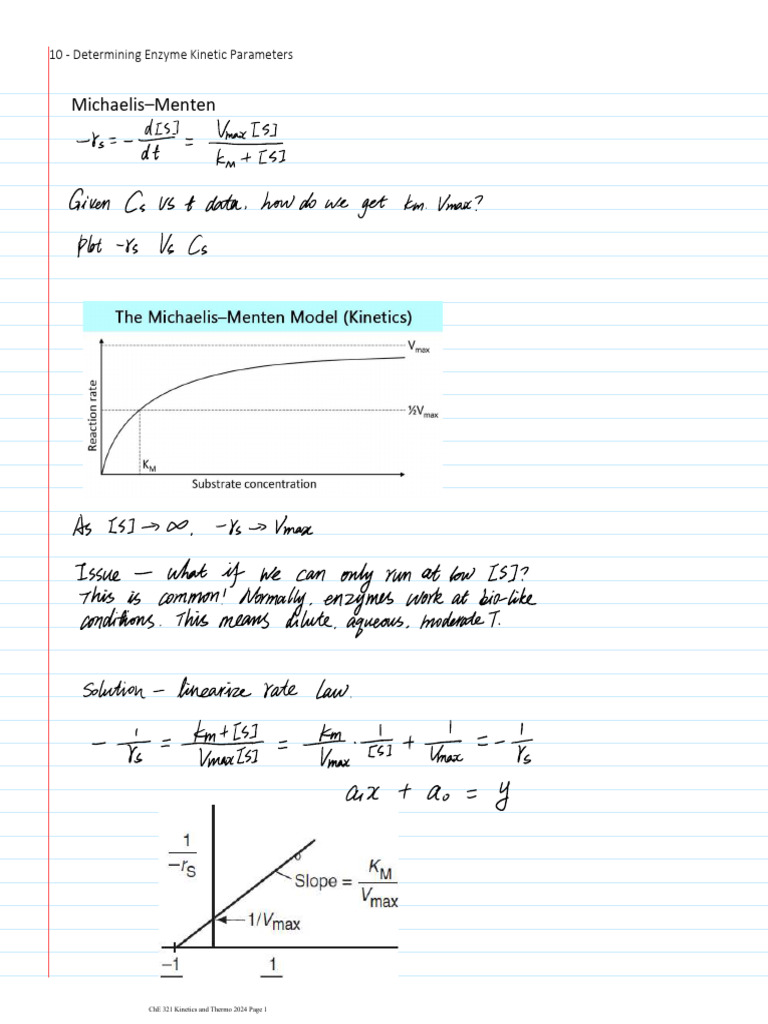 10 - Determining Enzyme Kinetic Parameters
Michaelis–Menten
-rs = - d[S]/dt = Vmax [S] / kM + [S]
Given Cs vs t data, how do we get km. Vmax?
plot -rs Vs Cs
The Michaelis–Menten Model (Kinetics)
Vmax
Reaction rate
½Vmax
KM
Substrate concentration
As [S] → ∞, -rs → Vmax
Issue — what if we can only run at low [S]?
This is common! Normally, enzymes work at bio-like
conditions. This means dilute, aqueous, moderate T.
Solution — linearize rate law.
- 1/rs = km + [S] / Vmax [S] = km/Vmax · 1/[S] + 1/Vmax = - 1/rs
a1x + a0 = y
1/-rS
Slope = KM/Vmax
1/Vmax
-1 1
ChE 321 Kinetics and Thermo 2024 Page 1